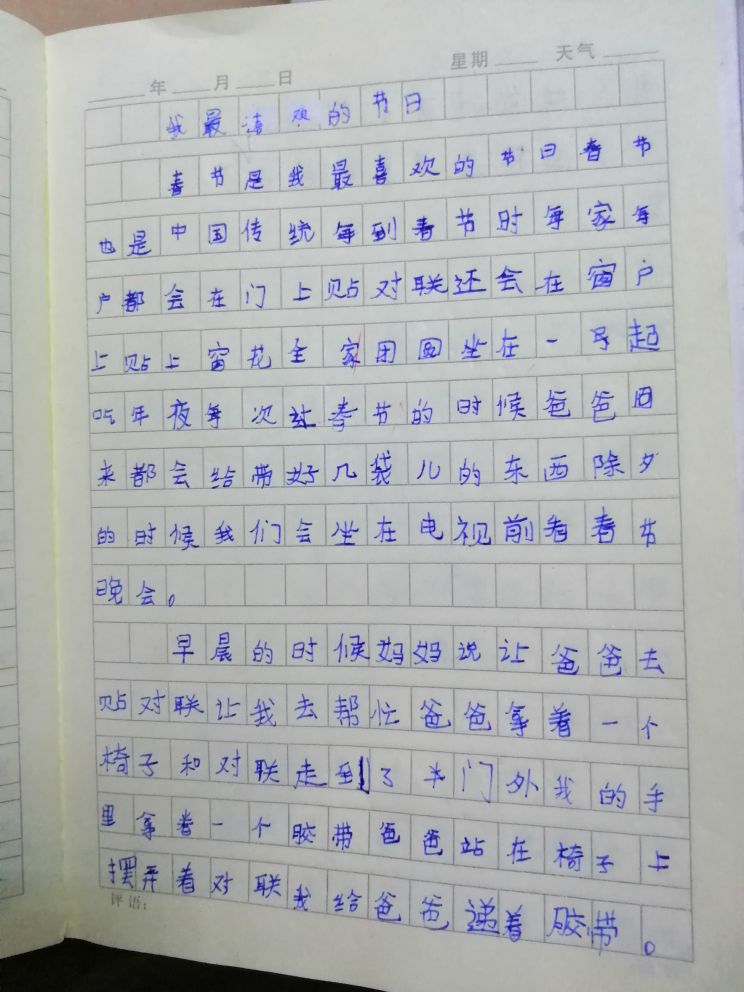 年 月 日 星期 天气
我最喜欢的节日
春节是我最喜欢的节日春节
也是中国传统每到春节时每家每
户都会在门上贴对联还会在窗户
上贴上窗花全家团圆坐在一号起
吃年夜每次过春节的时候爸爸回
来都会给带好几袋儿的东西除夕
的时候我们会坐在电视前看春节
晚会。
早晨的时候妈妈说让爸爸去
贴对联让我去帮忙爸爸拿着一个
椅子和对联走到了大门外我的手
里拿着一个胶带爸爸站在椅子上
摆弄着对联我给爸爸递着胶带。
评语: